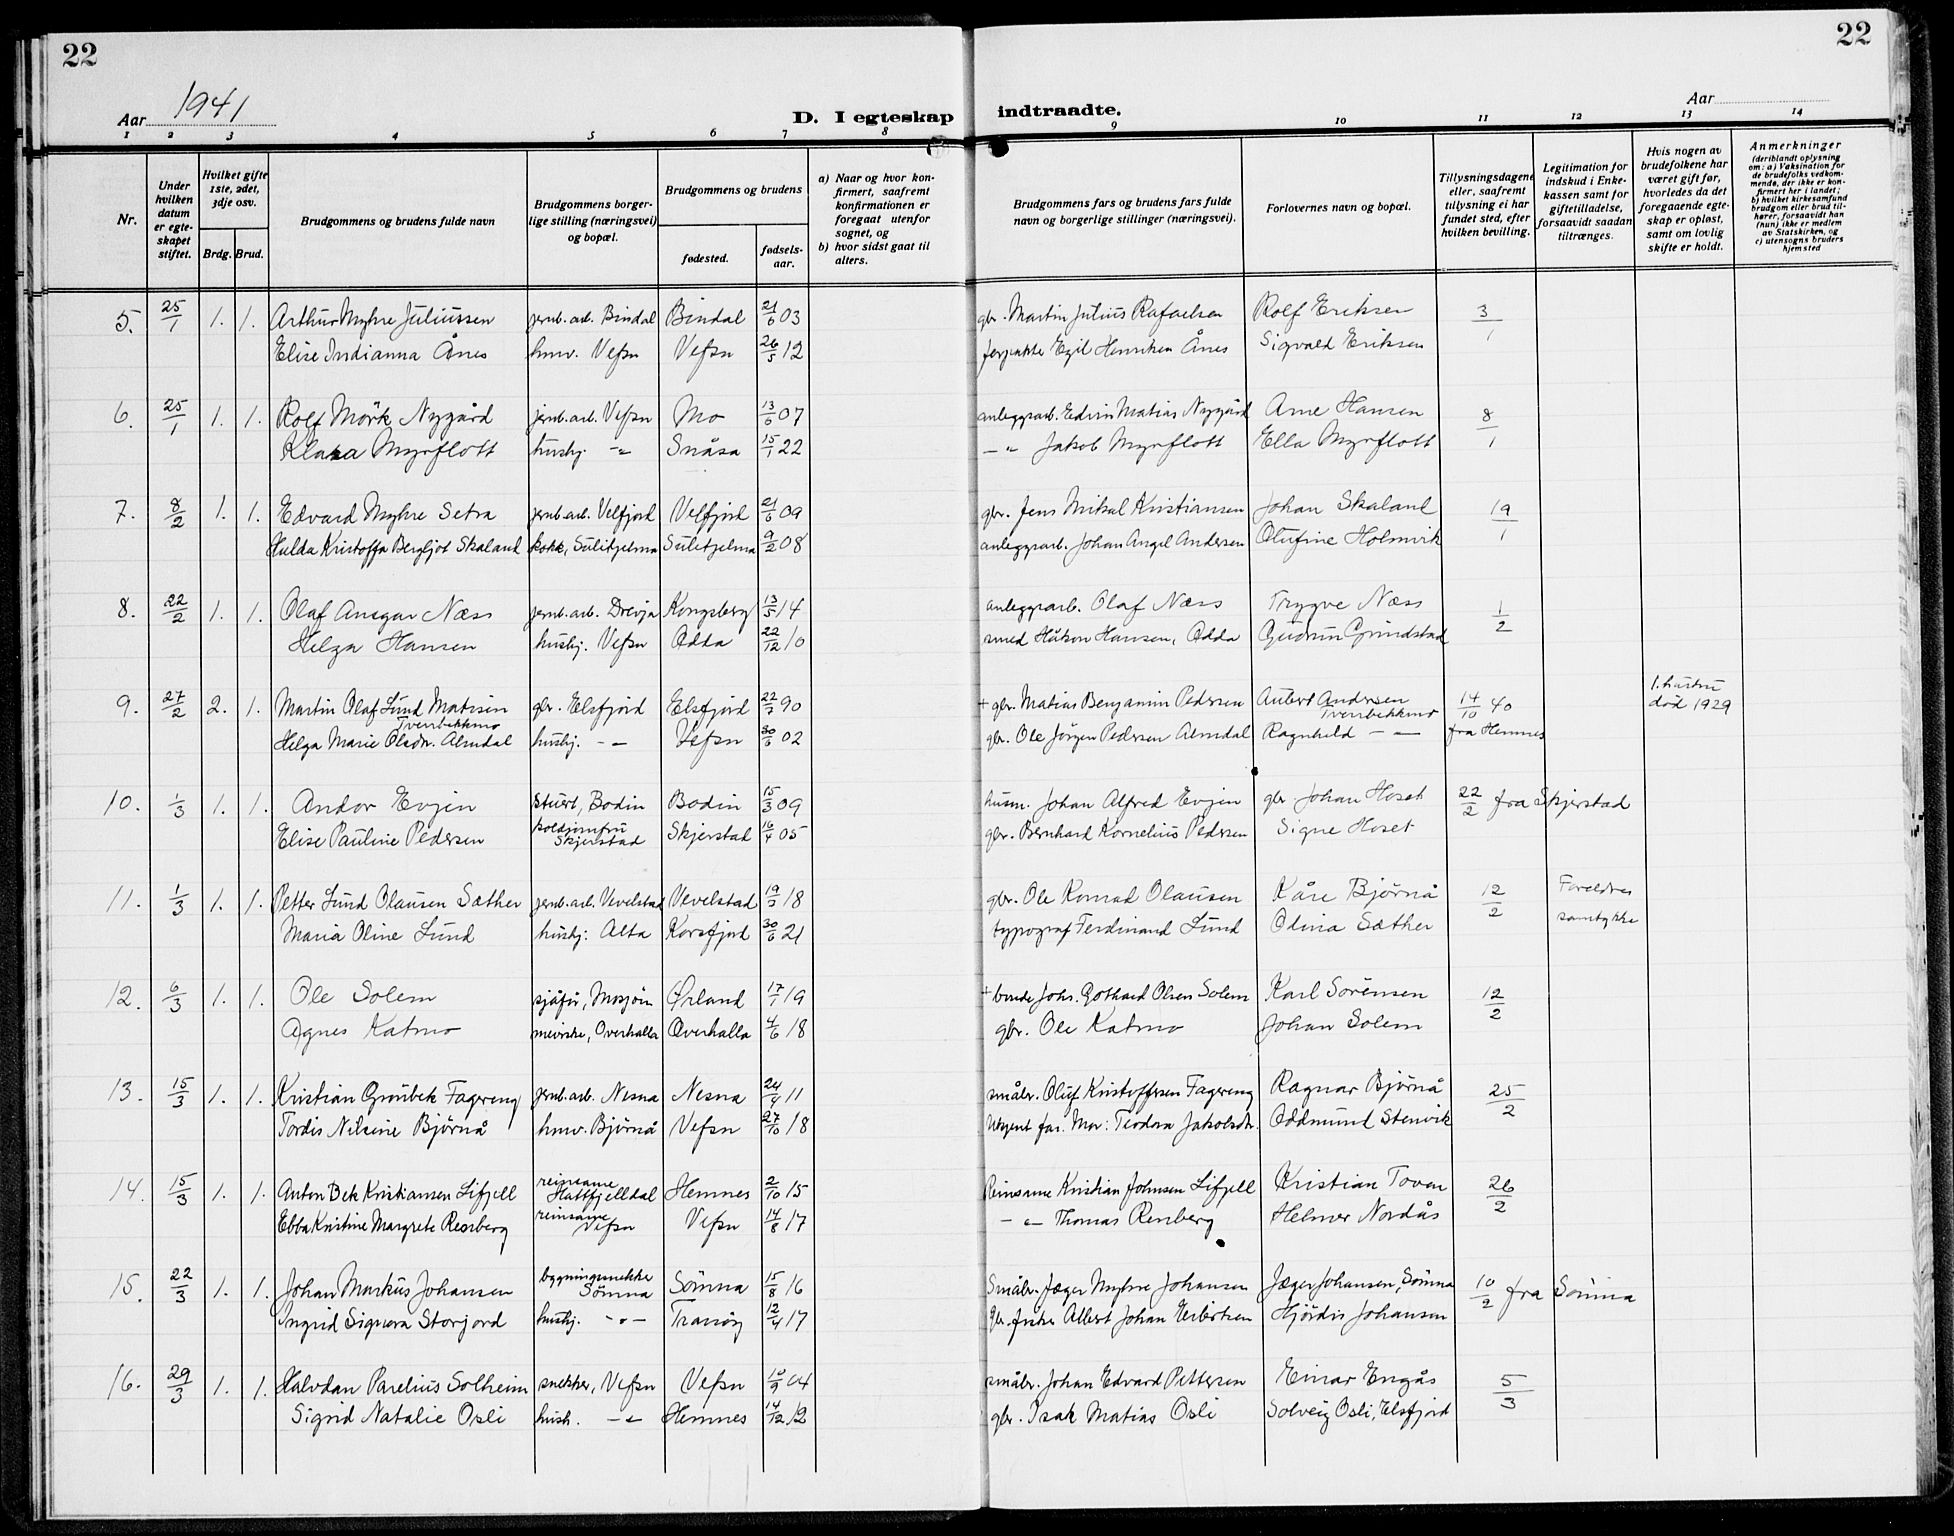 22
22
Aar 1941
D. I egteskap indtraadte.
Aar
1 2 3 4 5 6 7 8 9 10 11 12 13 14
Nr.
Under hvilken datum er egteskapet stiftet.
Hvilket gifte 1ste, 2det, 3dje osv.
Brdg. Brud.
Brudgommens og brudens fulde navn
Brudgommens borgerlige stilling (næringsvei) og bopæl.
Brudgommens og brudens
fødested.
fødselsaar.
a) Naar og hvor konfirmert, saafremt konfirmationen er foregaat utenfor sognet, og
b) hvor sidst gaat til alters.
Brudgommens fars og brudens fars fulde navn og borgerlige stillinger (næringsvei).
Forlovernes navn og bopæl.
Tillysningsdagene eller, saafremt tillysning ei har fundet sted, efter hvilken bevilling.
Legitimation for indskud i Enkekassen samt for giftetilladelse, forsaavidt saadan tiltrænges.
Hvis nogen av brudefolkene har været gift før, hvorledes da det foregaaende egteskap er opløst, samt om lovlig skifte er holdt.
Anmerkninger
(deriblandt oplysning om: a) Vaksination for de brudefolks vedkommende, der ikke er konfirmert her i landet;
b) hvilket kirkesamfund brudgom eller brud tilhører, forsaavidt han (hun) ikke er medlem av Statskirken, og
c) utensogns bruders hjemsted
5. 25/1 1. 1. Arthur Myhre Juliussen jernb.arb. Bindal Bindal 21/6 03 gbr. Martin Julius Rafaelsen Rolf Eriksen 3/1
Elise Indianna Ånes hmv. Vefsn Vefsn 26/5 12 Egil Henriken Ånes Sigvald Eriksen
6. 25/1 1. 1. Rolf Mörk Nygård jernb.arb. Vefsn Mo 13/6 07 anleggsarb. Edvin Matias Nygård Arne Hansen 8/1
Klara Myrflott hushj. -"- Snåsa 15/1 22 -"- Jakob Myrflott Ella Myrflott
7. 8/2 1. 1. Edvard Myhre Setra jernb.arb. Velfjord Velfjord 21/6 09 gbr. Jens Mikal Kristiansen Johan Skaland 19/1
Hulda Kristoffa Bergljot Skaland kokk, Sulitjelma Sulitjelma 9/2 08 anleggsarb. Johan Angel Andersen Olufine Holmvik
8. 22/2 1. 1. Olaf Ansgar Næss jernb.arb. Drevja Kongsberg 13/5 14 anleggsarb. Olaf Næss Trygve Næss 1/2
Helga Hansen hushj. Vefsn Odda 22/12 10 smed Håkon Hansen, Odda Gudrun Grindstad
9. 27/2 2. 1. Martin Olaf Lund Matisen gbr. Elsfjord Elsfjord 22/7 90 + gbr. Matias Benjamin Pedersen Aubert Andersen 14/10 40 1. hustru død 1929
Tverrbekkmo Tverrbekkmo
Helga Marie Olsdtr. Almdal hushj. -"- Vefsn 30/6 02 gbr. Ole Jörgen Pedersen Almdal Ragnhild -"- fra Hemnes
10. 1/3 1. 1. Andor Evjen stuert, Bodin Bodin 15/3 09 husm. Johan Alfred Evjen gbr Johan Hoset 22/2 fra Skjerstad
Elise Pauline Pedersen koldjomfru Skjerstad Skjerstad 16/4 05 gbr. Bernhard Kornelius Pedersen Signe Hoset
11. 1/3 1. 1. Petter Lund Olausen Sæther jernb.arb. Vevelstad Vevelstad 19/2 18 gbr. Ole Konrad Olausen Kåre Bjørnå 12/2 Foreldres samtykke
Maria Oline Lund hushj: Alta Korsfjord 30/6 21 typograf Ferdinand Lund Olina Sæther
12. 6/3 1. 1. Ole Solem sjåfør, Mosjøen Ørland 17/1 19 + bonde Johs. Gothard Olsen Solem Karl Sörensen 12/2
Agnes Katmo meierske, Overhalla Overhalla 4/6 18 gbr. Ole Katmo Johan Solem
13. 15/3 1. 1. Kristian Grönbek Fagereng jernb.arb. Nesna Nesna 24/4 11 småbr. Oluf Kristoffersen Fagereng Ragnar Bjørnå 25/2
Tordis Nilsine Bjørnå hmv. Bjørnå Vefsn 27/10 18 Ukjent far. Mor: Teodora Jakobsdtr. Oddmund Stenvik
14. 15/3 1. 1. Anton Bek Kristiansen Lifjell reinsame Hattfjelldal Hemnes 2/10 15 Reinsame Kristian Johnsen Lifjell Kristian Toven 26/2
Ebba Kristine Margrete Renberg reinsame Vefsn Vefsn 14/8 17 -"- Thomas Renberg Helmer Nordås
15. 22/3 1. 1. Johan Markus Johansen bygningssnekke Sömna Sömna 15/8 16 Småbr. Jæger Myhre Johansen Jæger Johansen, Sömna 10/2 fra Sömna
Ingrid Signora Storjord hushj. -"- Tranöy 12/4 17 Gbr. fisker Albert Johan Eilertsen Hjördis Johansen
16. 29/3 1. 1. Halvdan Parelius Solheim snekker, Vefsn Vefsn 10/9 04 småbr. Johan Edvard Pettersen Einar Engås 5/3
Sigrid Natalie Osli hush. -"- Hemnes 14/12 12 gbr. Isak Matias Osli Solveig Osli, Elsfjord